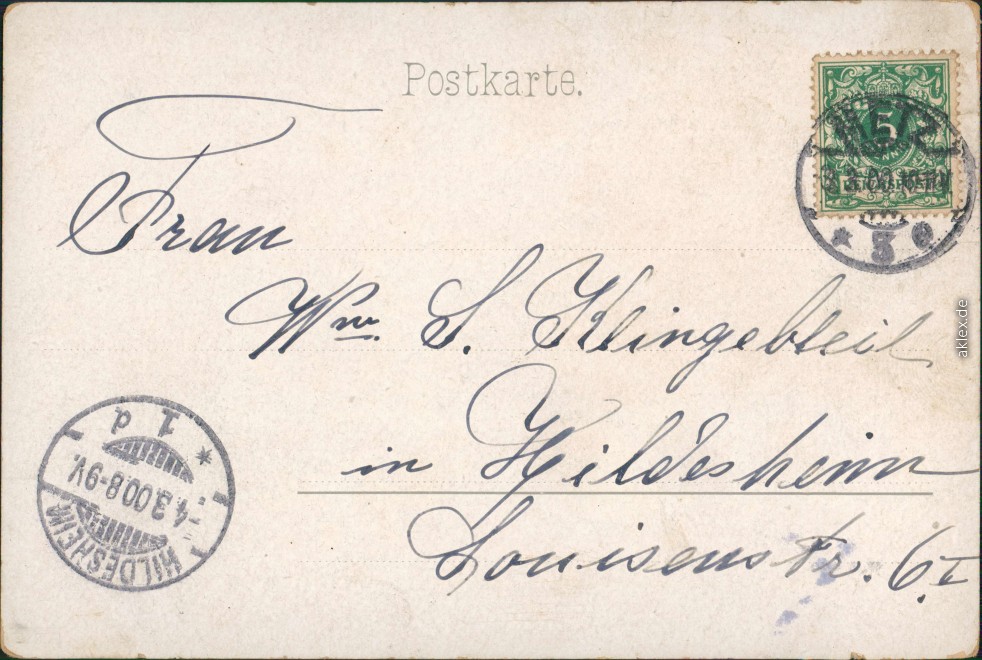 Postkarte.
5
REICHSPOST
METZ
* 3 e
Frau
Wwe. S. Klingebleil
in Hildesheim
Louisenstr. 6 I
1 d
4.3.00.8-9V.
HILDESHEIM
aklex.de